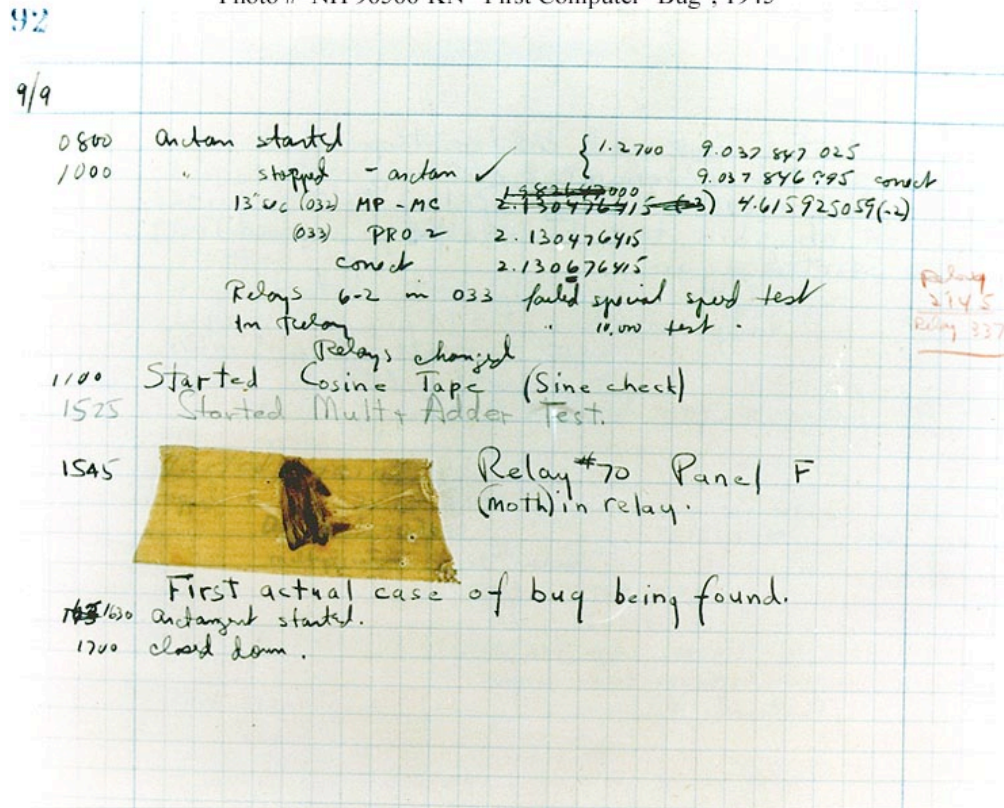 Photo # NH 96566-KN "First Computer "Bug", 1945
92
9/9
0800 arctan started { 1.2700 9.037 847 025
1000 " stopped - arctan ✓ 9.037 846 795 correct
13"sec (032) MP - MC 2.130476415 (-3) 4.615925059(-2)
(033) PRO 2 2.130476415
correct 2.130676415
Relays 6-2 in 033 failed special speed test
In Relay " 10,000 test.
Relay
2145
Relay 337
Relays changed
1100 Started Cosine Tape (Sine check)
1525 Started Mult + Adder Test.
1545 Relay #70 Panel F
(moth) in relay.
First actual case of bug being found.
1630 arctangent started.
1700 closed down.